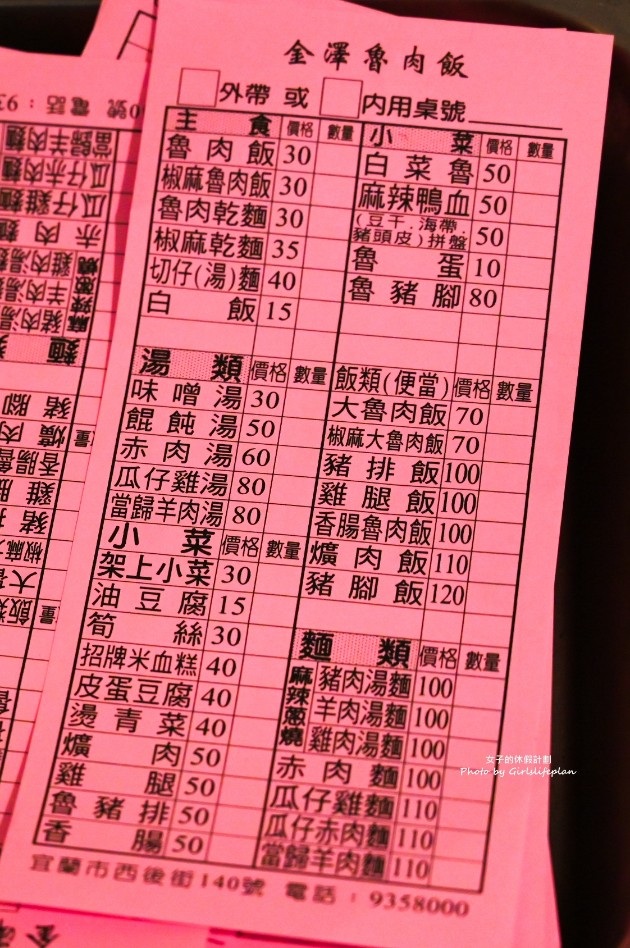 金澤魯肉飯
外帶 或 内用桌號
主食 價格 數量
魯肉飯 30
椒麻魯肉飯 30
魯肉乾麵 30
椒麻乾麵 35
切仔(湯)麵 40
白飯 15
湯類 價格 數量
味噌湯 30
餛飩湯 50
赤肉湯 60
瓜仔雞湯 80
當歸羊肉湯 80
小菜 價格 數量
架上小菜 30
油豆腐 15
筍絲 30
招牌米血糕 40
皮蛋豆腐 40
燙青菜 40
爌肉 50
雞腿 50
魯豬排 50
香腸 50
小菜 價格 數量
白菜魯 50
麻辣鴨血 50
(豆干.海帶.
豬頭皮)拼盤 50
魯蛋 10
魯豬腳 80
飯類(便當) 價格 數量
大魯肉飯 70
椒麻大魯肉飯 70
豬排飯 100
雞腿飯 100
香腸魯肉飯 100
爌肉飯 110
豬腳飯 120
麵類 價格 數量
麻辣
豬肉湯麵 100
羊肉湯麵 100
雞肉湯麵 100
赤肉麵 100
瓜仔雞麵 110
瓜仔赤肉麵 110
當歸羊肉麵 110
宜蘭市西後街140號 電話：9358000
女子的休假計劃
Photo by Girlslifeplan